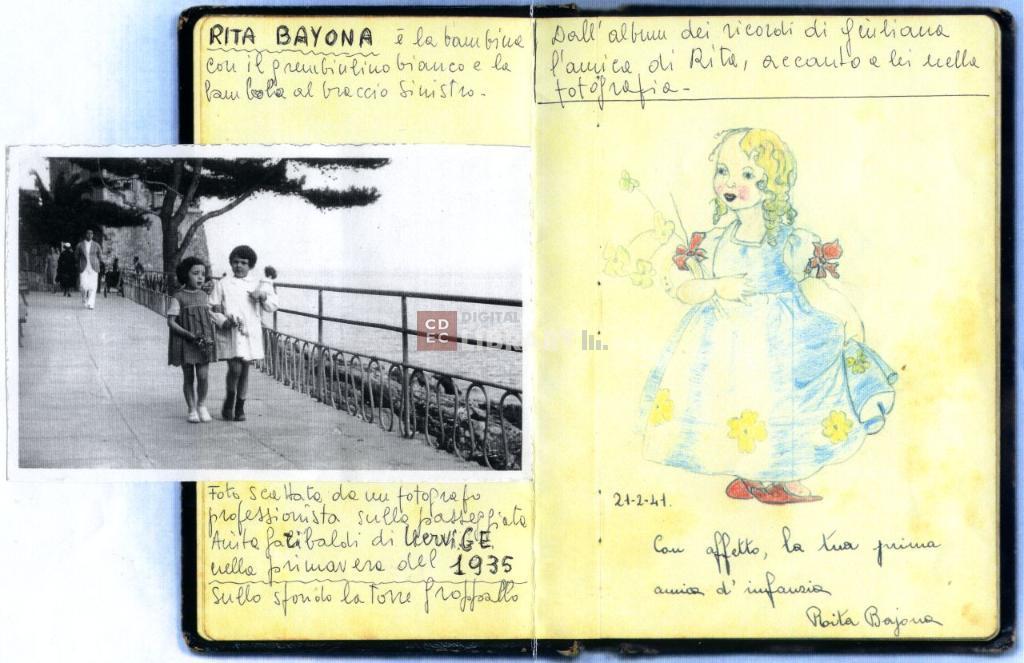 RITA BAYONA è la bambina
con il grembiulino bianco e la
bambola al braccio sinistro.
Foto scattata da un fotografo
professionista sulla passeggiata
Anita Garibaldi di Nervi GE
nella primavera del 1935
Sullo sfondo la torre Groppallo
Dall'album dei ricordi di Giuliana
l'amica di Rita, accanto a lei nella
fotografia.
21-2-41.
Con affetto, la tua prima
amica d'infanzia
Rita Bajona
CD
EC
DIGITAL
LIBRARY